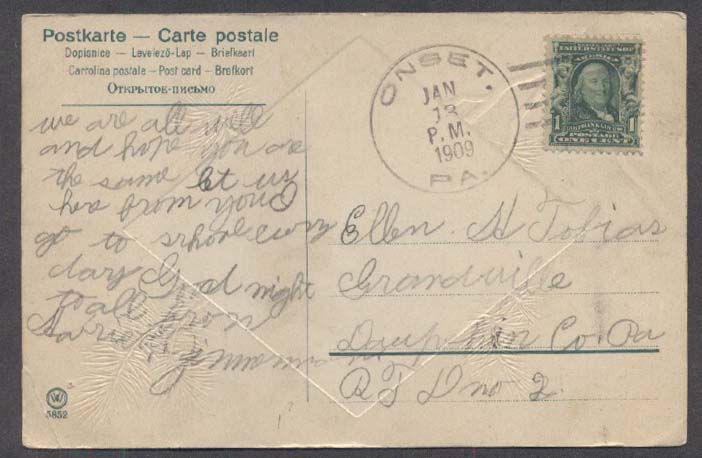 Postkarte — Carte postale
Dopisnice — Levelező-Lap — Briefkaart
Cartolina postale — Post card — Brefkort
Открытое-письмо
ONSET,
JAN
13
P.M.
1909
PA.
UNITED STATES OF
AMERICA
1 FRANKLIN 1
POSTAGE
ONE CENT
we are all well
and hope you are
the same let us
hea from you I
go to school every
day Good night
to all from
Zimmerman
Ellen. H Tobias
Grandville
Dauphin Co. Pa
R F D no 2.
W
5852